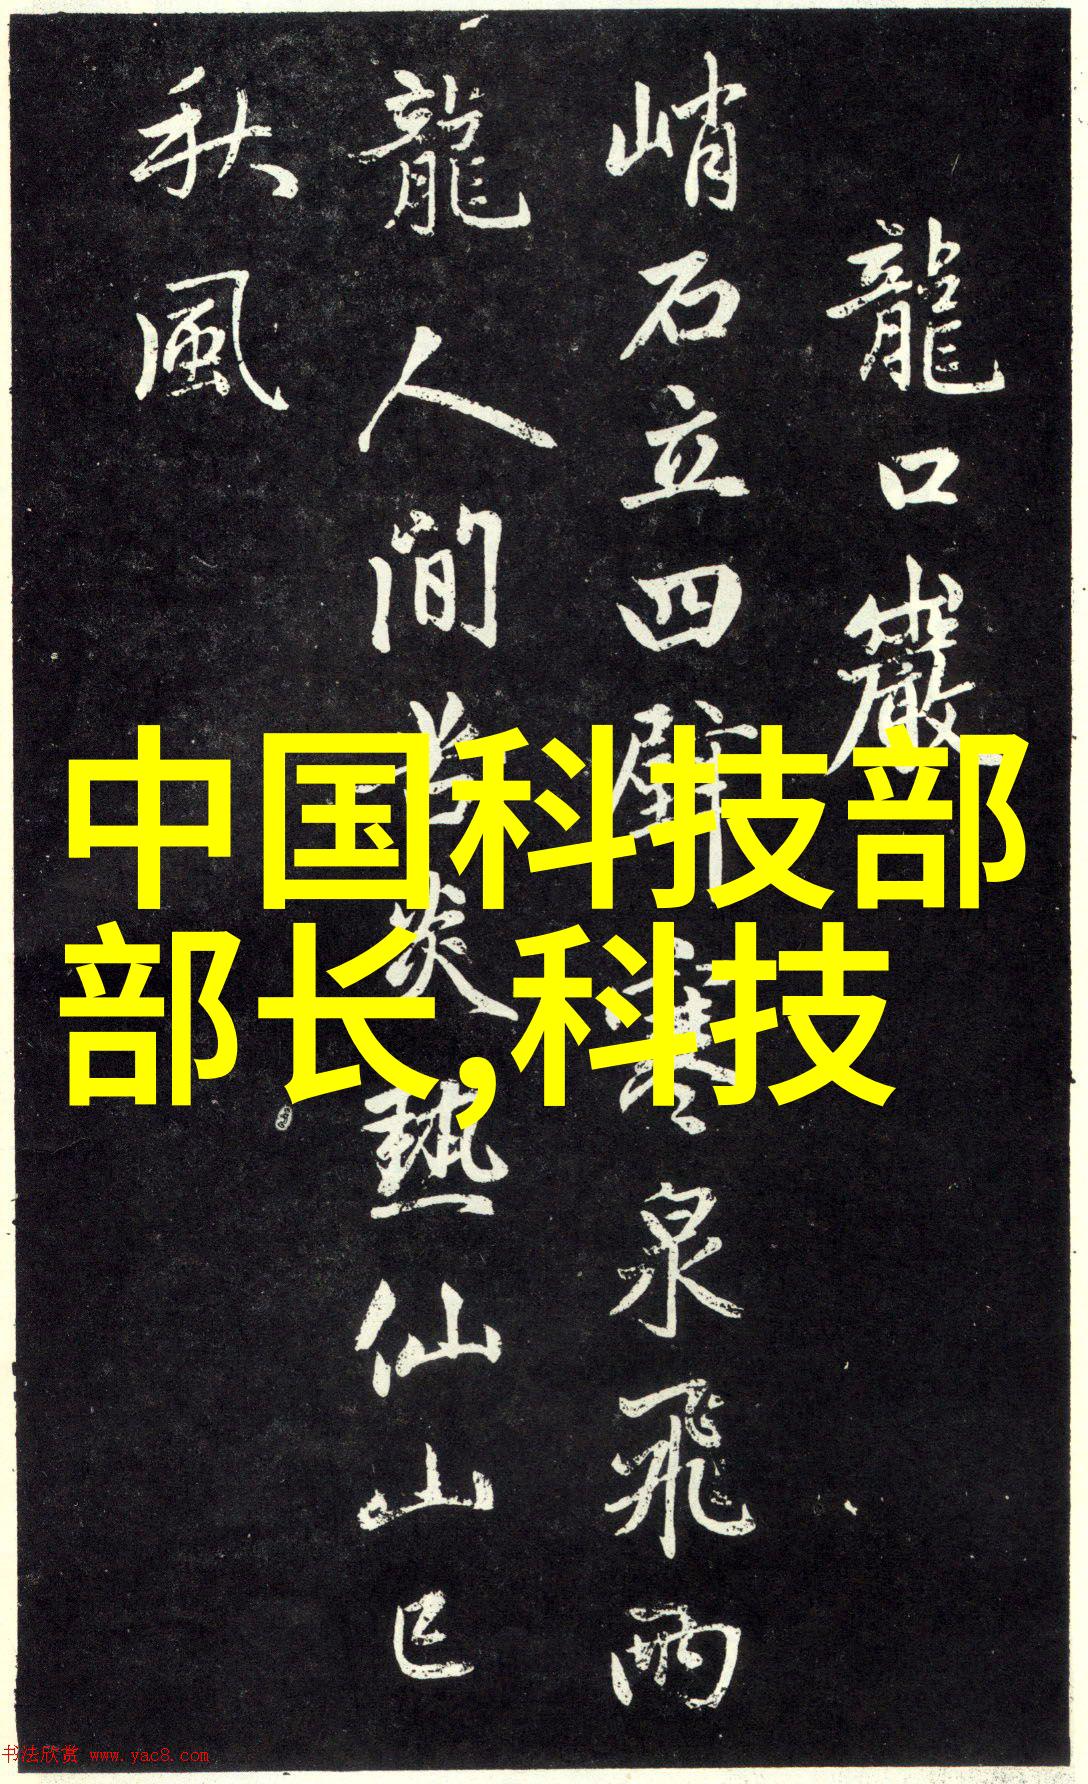 龍口巖
峭石立四壁寒泉飛雨
龍人间苦炎熱仙山已
秋風
中国科技部
部长,科技
书法欣赏 www.yac8.com